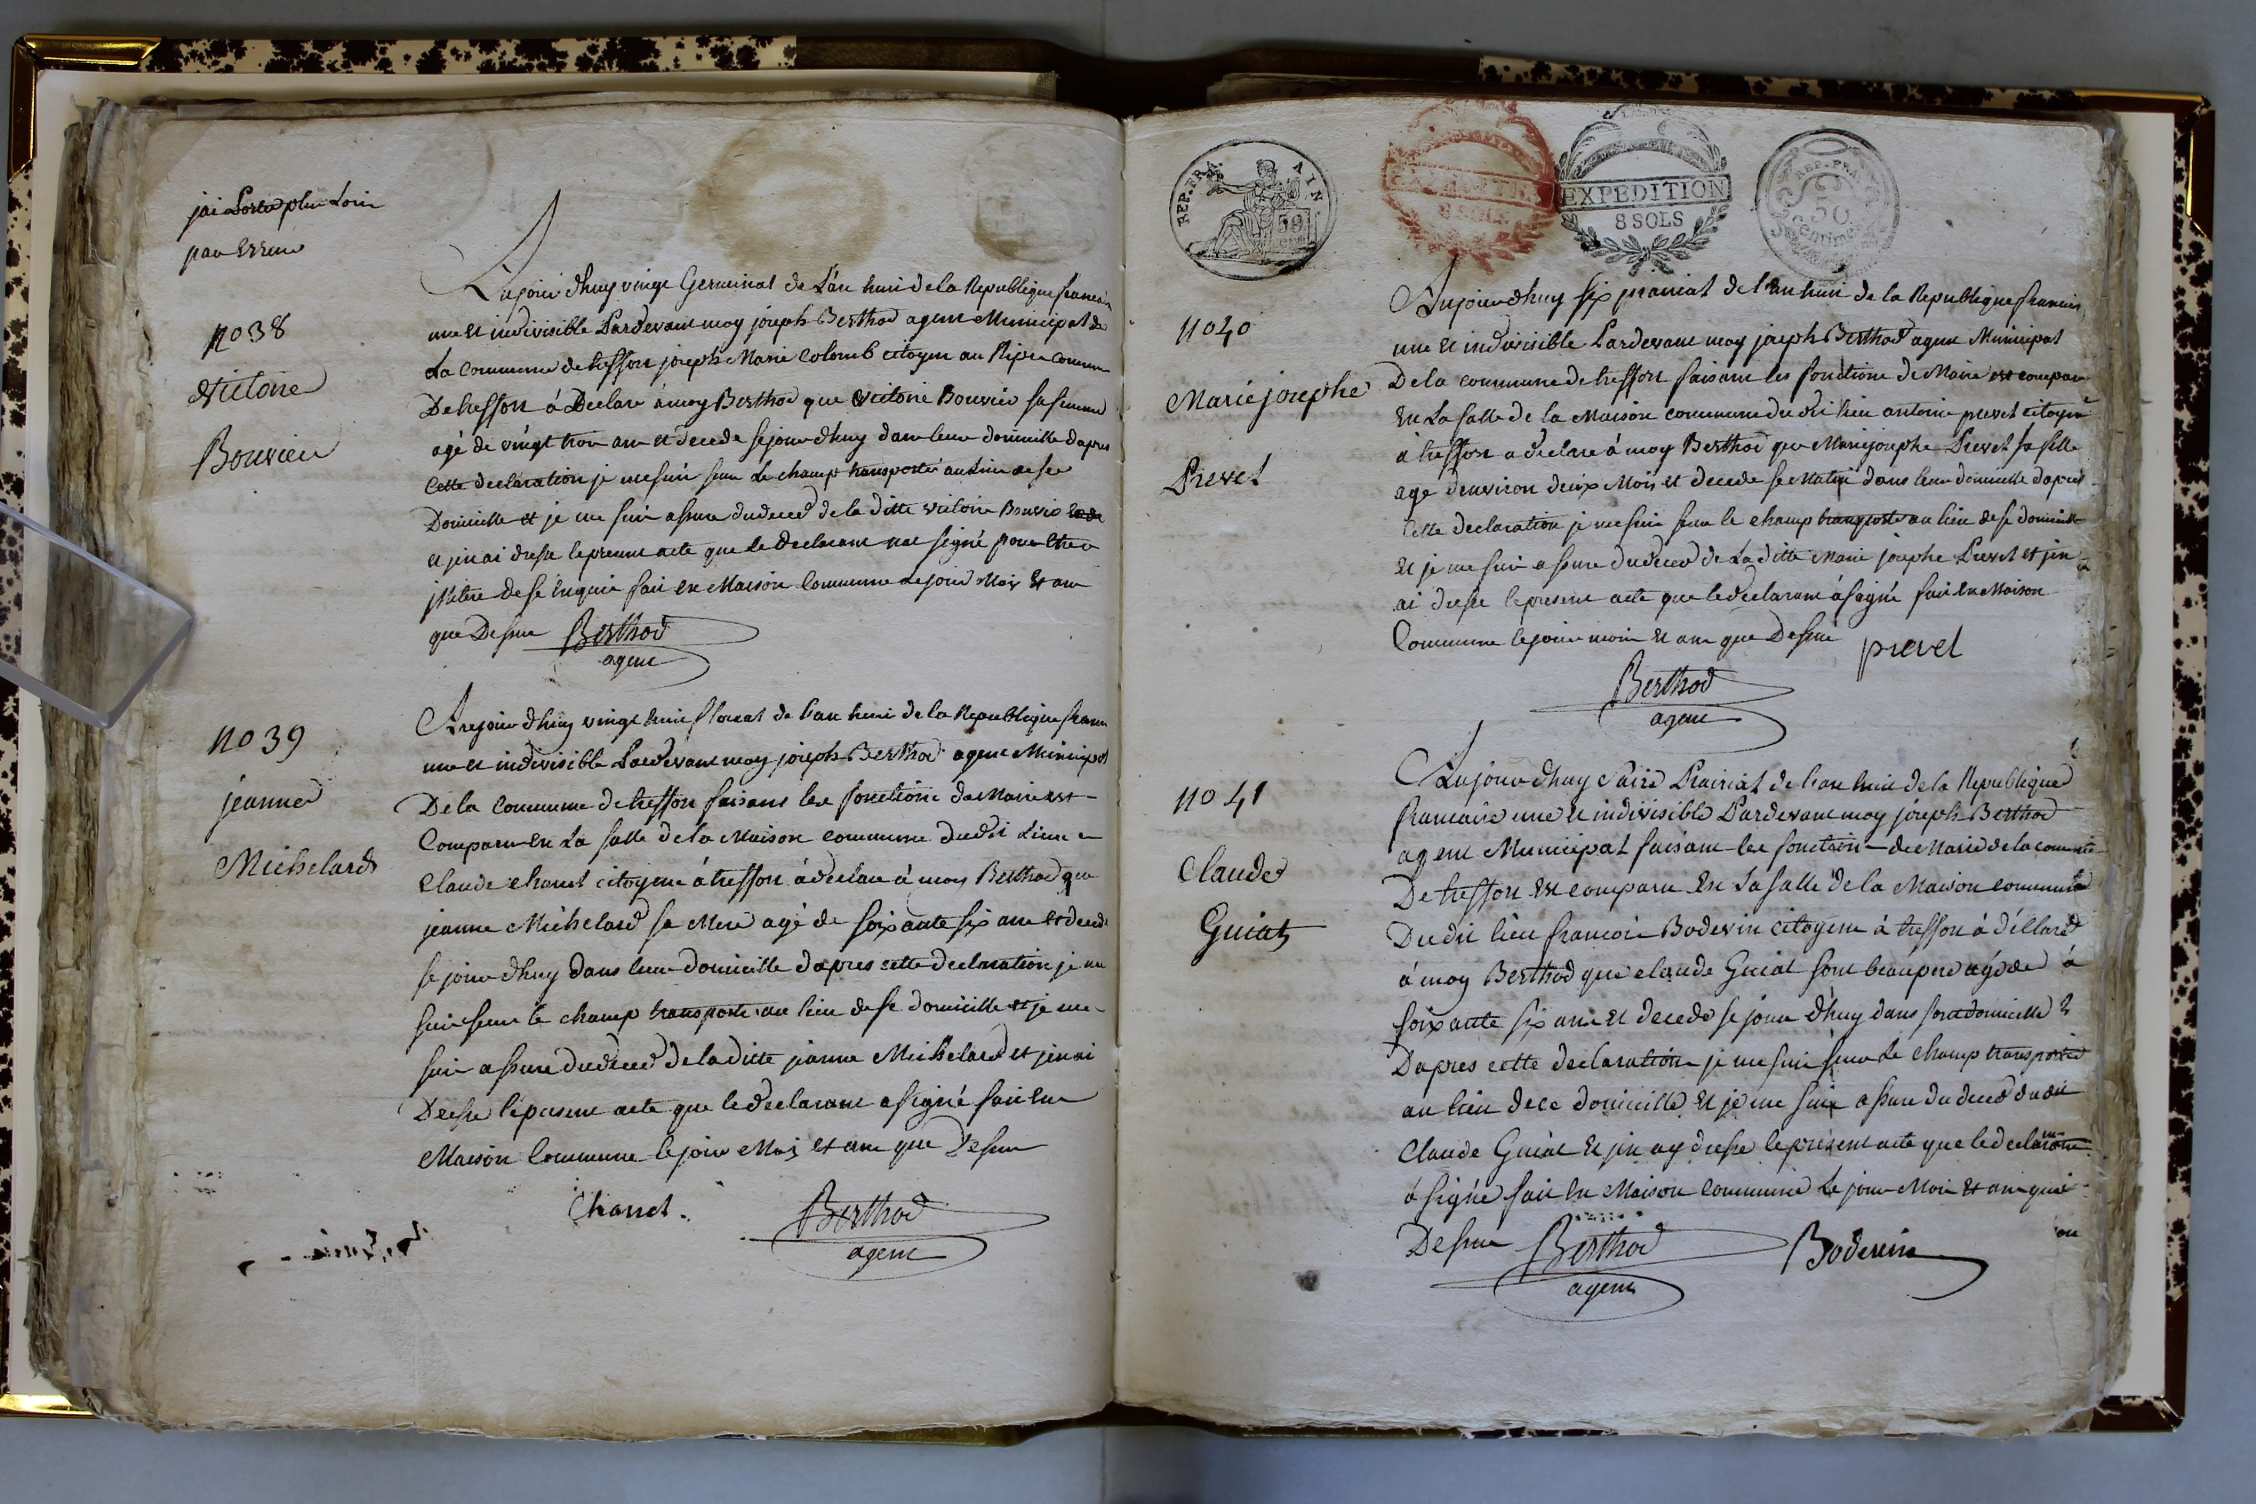 jai Porté plus Loin
par Erreur
no 38
victoire
Bouvier
Aujour dhuy vingt Germinal de L'an huit de la Republique francais
une et indivisible Pardevant moy joseph Berthod agent Municipal de
La Commune de tresffon joseph Marie Colomb citoyen au Commune
De tresffon á Declare á moy Berthod que victoire Bouvier sa femme
agé de vingt trois ans et decede se jour dhuy dans leur domicille dapres
Cette declaration je me suis sur Le champ transporté au Lieu de se
Domicille et je me suis assure du deced de la ditte victoire Bouvier
et jen ai dresse le present acte que le declarant na signé pour
de se enquis fait en Maison Commune le jour Mois et an
que Dessus Berthod
agent
no 39
jeanne
Michelard
Aujour dhuy vingt huit floreal de lan huit de la Republique francais
une et indivisible Pardevant moy joseph Berthod agent Municipal
De la Commune de tresffon faisant les fonctions de Maire est
Comparu en La salle de la Maison commune dudit Lieu
Claude Chanel citoyen á tresffon á declare á moy Berthod que
jeanne Michelard sa Mere agé de soixante six ans et decede
se jour dhuy dans leur domicille dapres cette declaration je me
suis sur le champ transporte au lieu de se domicille et je me
suis assure du deced de la ditte jeanne Michelard et jen ai
Dresse le present acte que le declarant a signé fait en
Maison Commune le jour Mois et an que Dessus
Chanel. Berthod
agent
REP. FRA. AIN
EXPEDITION
8 SOLS
EXPEDITION
8 SOLS
REP. FRA.
50
Centimes
no 40
Marie josephe
Prevel
Aujour dhuy six prairial de l'an huit de la Republique francais
une et indivisible Pardevant moy joseph Berthod agent Municipal
De la commune de tresffon faisant les fonctions de Maire est comparu
en La salle de la Maison commune du dit lieu antoine prevel citoyen
á tresffon a declare á moy Berthod que Marie josephe Prevel sa fille
age denviron deux Mois et decede se Matin dans leur domicille dapres
Cette declaration je me suis sur le champ transporte au lieu de se domicille
et je me suis assure du deced de La ditte Marie josephe Prevel et jen
ai dresse le present acte que le declarant á signé fait en Maison
Commune le jour mois et an que Dessus prevel
Berthod
agent
no 41
Claude
Guiat
Aujour dhuy Prairial de lan huit de la Republique
francaise une et indivisible Pardevant moy joseph Berthod
agent Municipal faisant les fonction de Maire de la commune
De tresffon est comparu en La salle de la Maison commune
Dudit lieu francois Bodevin citoyen á tresffon á déllaré
á moy Berthod que claude Guiat son beaupere agé de
soixante six ans et decede se jour dhuy dans son domicille
Dapres cette declaration je me suis sur Le champ transporté
au lieu de ce domicille et je me suis assure du deced dudit
Claude Guiat et jen ay dresse le present acte que le declarant
á signé fait en Maison commune Le jour Mois et an que
Dessus Berthod Bodevin
agent